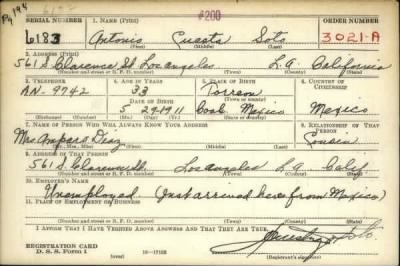 Pg 194 #200
SERIAL NUMBER 1. NAME (Print) ORDER NUMBER
6183 Antonio Cuesta Soto 3021-A
(First) (Middle) (Last)
2. ADDRESS (Print)
561 S Clarence St Los Angeles L.A. California
(Number and street or R. F. D. number) (Town) (County) (State)
3. TELEPHONE 4. AGE IN YEARS 5. PLACE OF BIRTH 6. COUNTRY OF CITIZENSHIP
AN-9742 33 Torreon
DATE OF BIRTH
5 24 1911 Coah. Mexico Mexico
7. NAME OF PERSON WHO WILL ALWAYS KNOW YOUR ADDRESS 8. RELATIONSHIP OF THAT PERSON
Mrs Amparo Diaz Cousin
(Mr., Mrs., Miss) (First) (Middle) (Last)
9. ADDRESS OF THAT PERSON
561 S. Clarence St. Los Angeles L.A. Calif.
(Number and street or R. F. D. number) (Town) (County) (State)
10. EMPLOYER'S NAME
Unemployed. (Just arrived here from Mexico)
11. PLACE OF EMPLOYMENT OR BUSINESS
(Number and street or R. F. D. number) (Town) (County) (State)
I AFFIRM THAT I HAVE VERIFIED ABOVE ANSWERS AND THAT THEY ARE TRUE.
REGISTRATION CARD
D. S. S. Form 1 16—17105
(over) (Registrant's signature)